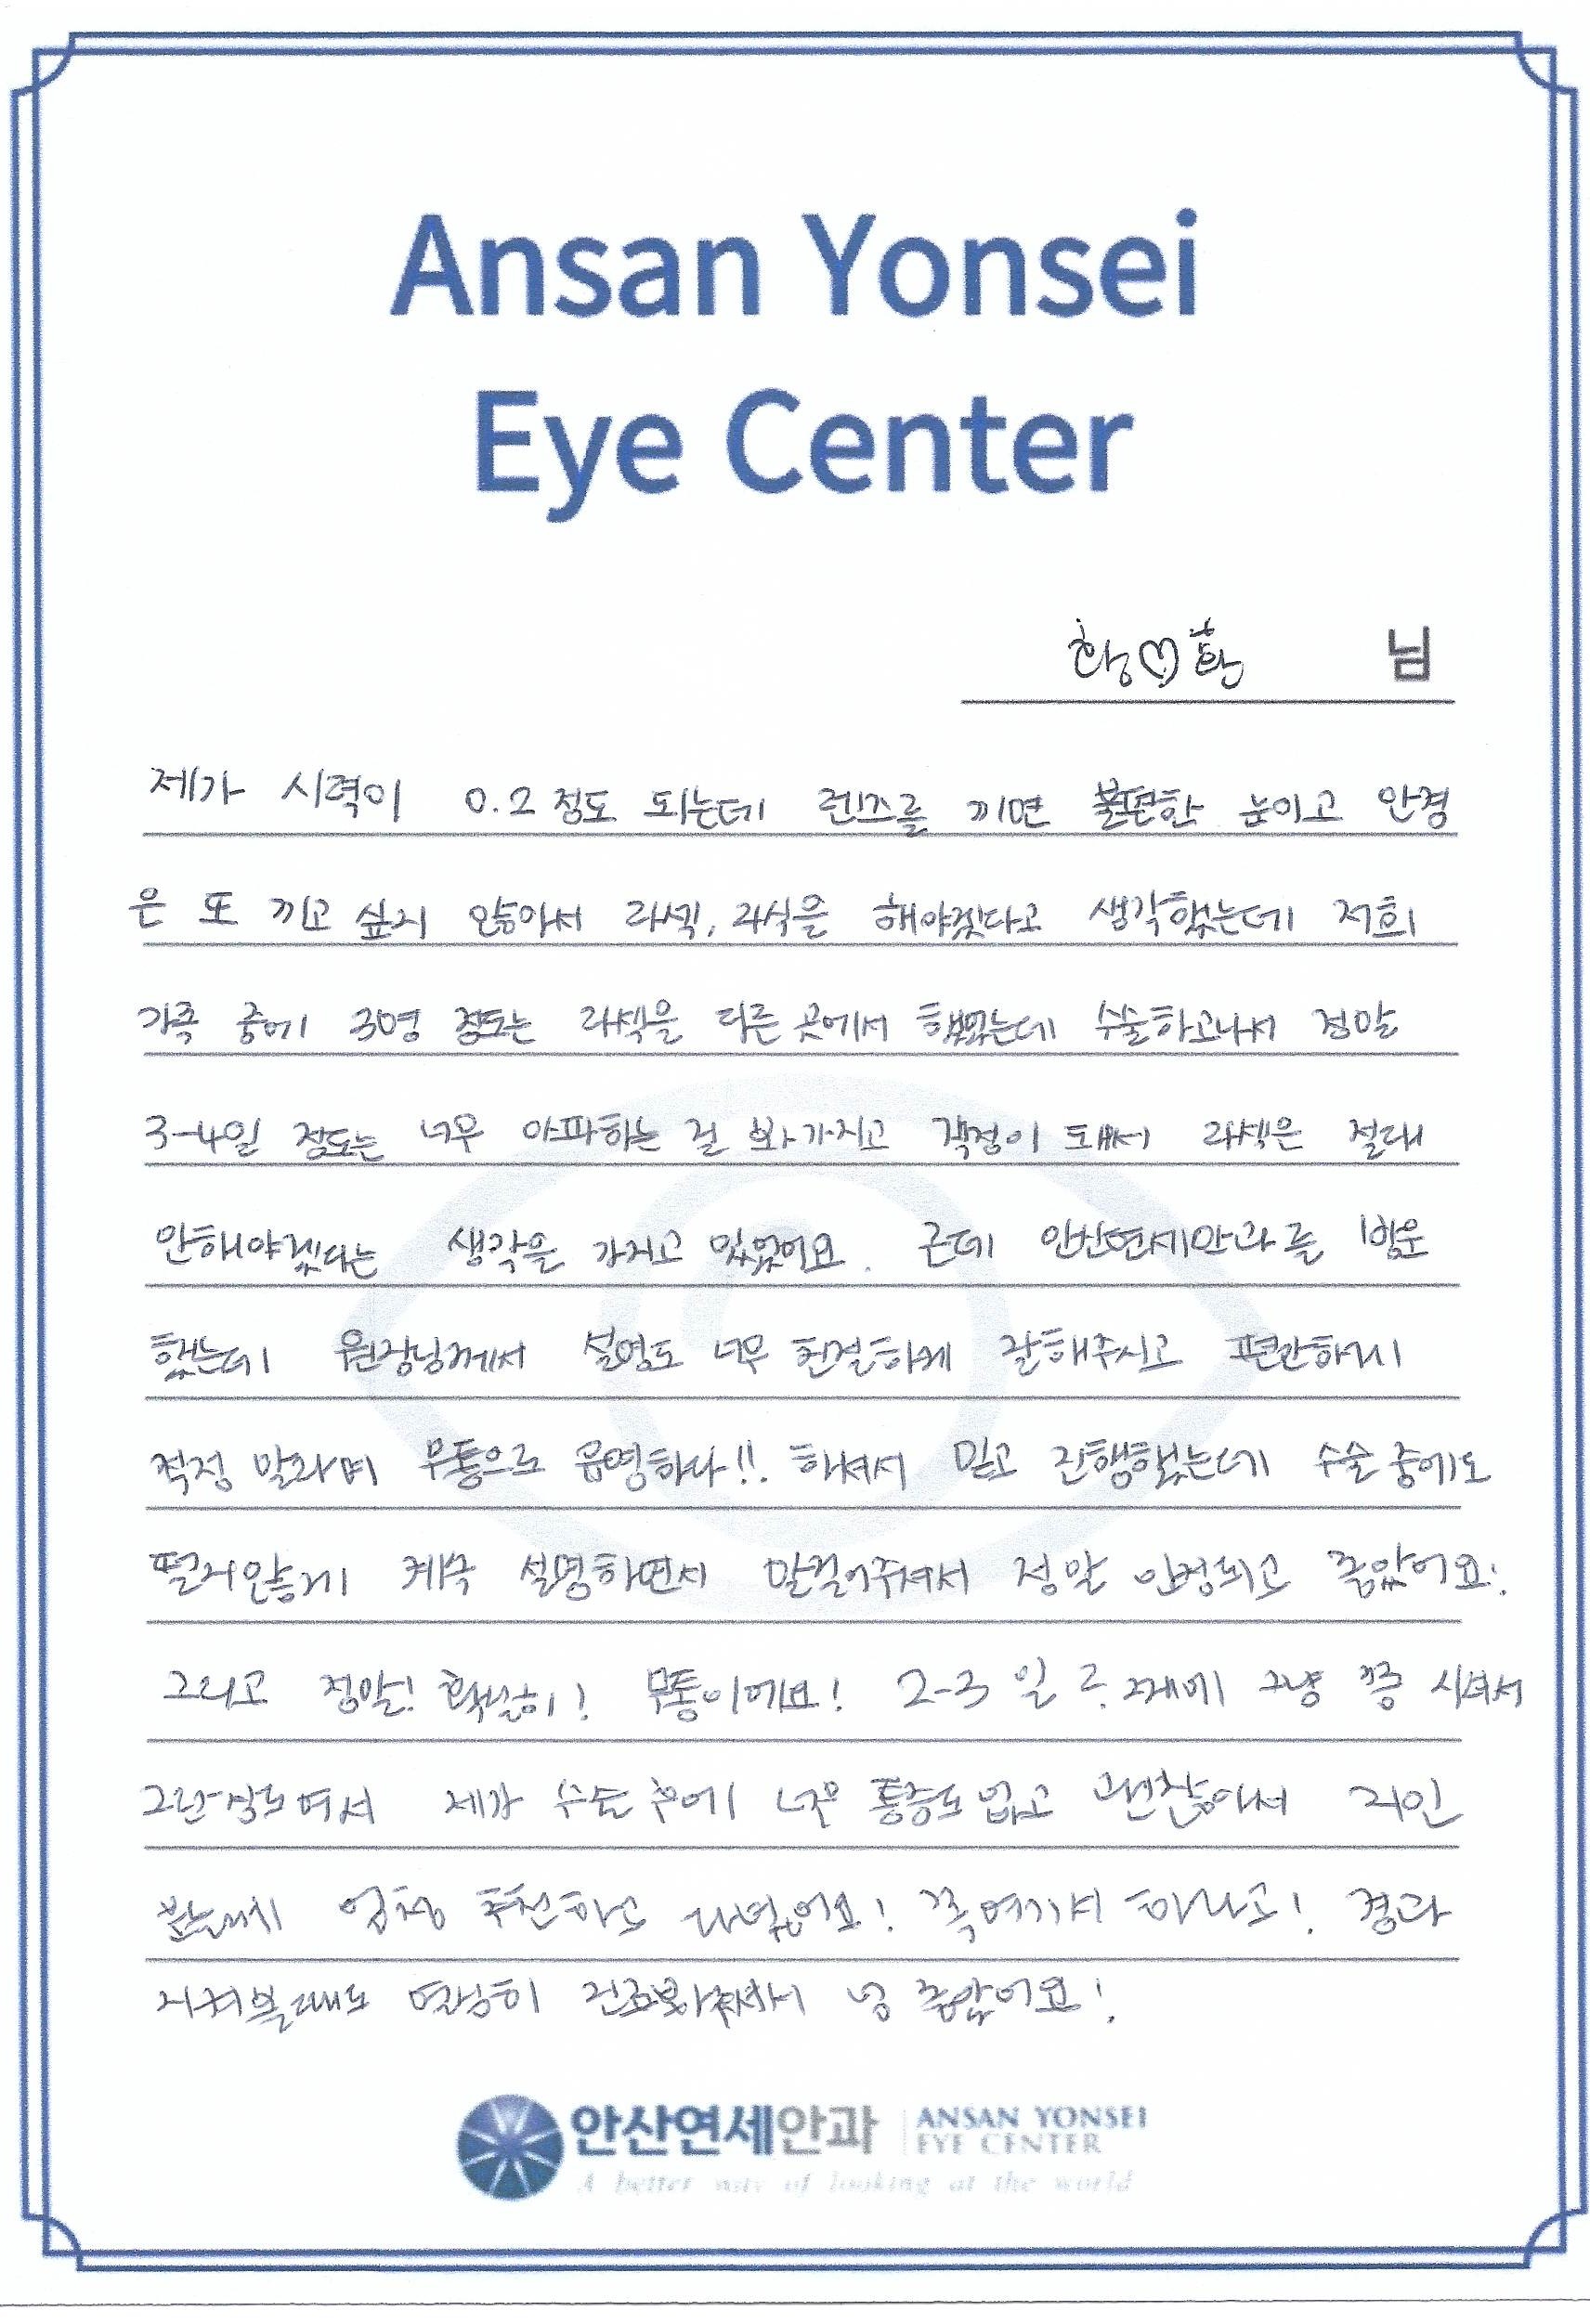 Ansan Yonsei
Eye Center
황♡환 님
제가 시력이 0.2 정도 되는데 렌즈를 끼면 불편한 눈이고 안경
은 또 끼고 싶지 않아서 라섹, 라식을 해야겠다고 생각했는데 저희
가족 중에 3명 정도는 라섹을 다른 곳에서 했었는데 수술하고나서 정말
3-4일 정도는 너무 아파하는 걸 봐가지고 걱정이 돼서 라섹은 절대
안해야겠다는 생각을 가지고 있었어요. 근데 안산연세안과를 방문
했는데 원장님께서 설명도 너무 친절하게 잘해주시고 편안하게
걱정 말라며 무통으로 유명하다!! 하셔서 믿고 진행했는데 수술 중에도
떨지않게 계속 설명하면서 말걸어주셔서 정말 안정되고 좋았어요!
그리고 정말! 확실히! 무통이에요! 2-3 일 째에 그냥 쫌 시려서
그런식으여서 제가 수술 후에 너무 통증도 없고 괜찮아서 지인
분들께 엄청 추천하고 다녔어요! 꼭 여기서 하라고! 경과
지켜볼때도 열심히 진료봐주셔서 넘 좋았어요!
안산연세안과 ANSAN YONSEI
EYE CENTER
A better way of looking at the world